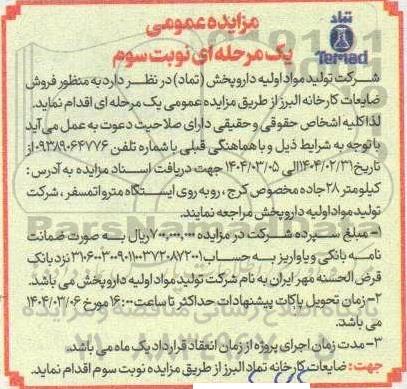 مزایده عمومی
یک مرحله ای نوبت سوم
تماد
Temad
شرکت تولید مواد اولیه داروپخش (تماد) در نظر دارد به منظور فروش
ضایعات کارخانه البرز از طریق مزایده عمومی یک مرحله ای اقدام نماید.
لذا کلیه اشخاص حقوقی و حقیقی دارای صلاحیت دعوت به عمل می آید
با توجه به شرایط ذیل و با هماهنگی قبلی با شماره تلفن ۰۹۳۸۹۰۶۴۷۷۶ از
تاریخ ۱۴۰۴/۰۲/۳۱ الی ۱۴۰۴/۰۳/۰۵ جهت دریافت اسناد مزایده به آدرس :
کیلومتر ۲۸ جاده مخصوص کرج ، روبه روی ایستگاه مترو اتمسفر ، شرکت
تولید مواد اولیه داروپخش مراجعه نمایند.
۱- مبلغ سپرده شرکت در مزایده ۷۰۰,۰۰۰,۰۰۰ ریال به صورت ضمانت
نامه بانکی و یا واریز به حساب ۳۱۶۰۰۳۰۰۹۰۱۱۰۰۳۷۲۰۸۷۲۰۰۱ نزد بانک
قرض الحسنه مهر ایران به نام شرکت تولید مواد اولیه داروپخش می باشد.
۲- زمان تحویل پاکات پیشنهادات حداکثر تا ساعت ۱۶:۰۰ مورخ ۱۴۰۴/۰۳/۰۶
می باشد.
۳- مدت زمان اجرای پروژه از زمان انعقاد قرارداد یک ماه می باشد.
جهت: ضایعات کارخانه تماد البرز از طریق مزایده نوبت سوم اقدام نماید.